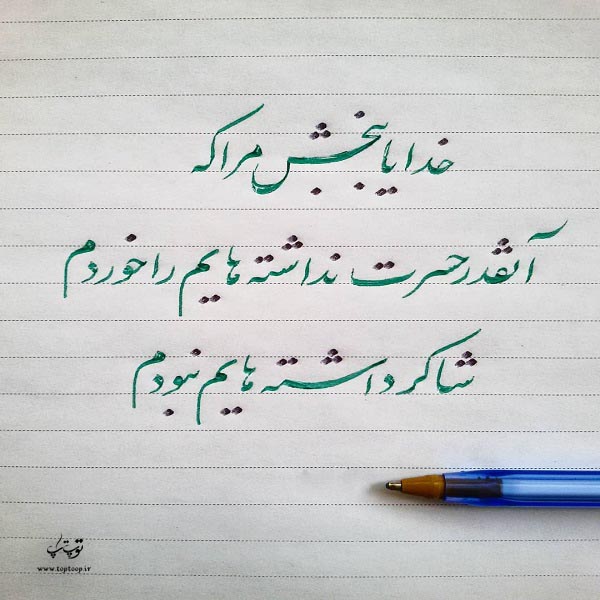 خدایا ببخش مرا که
آنقدر حسرت نداشته هایم را خوردم
شاکر داشته هایم نبودم
توپ تاپ
www.toptoop.ir